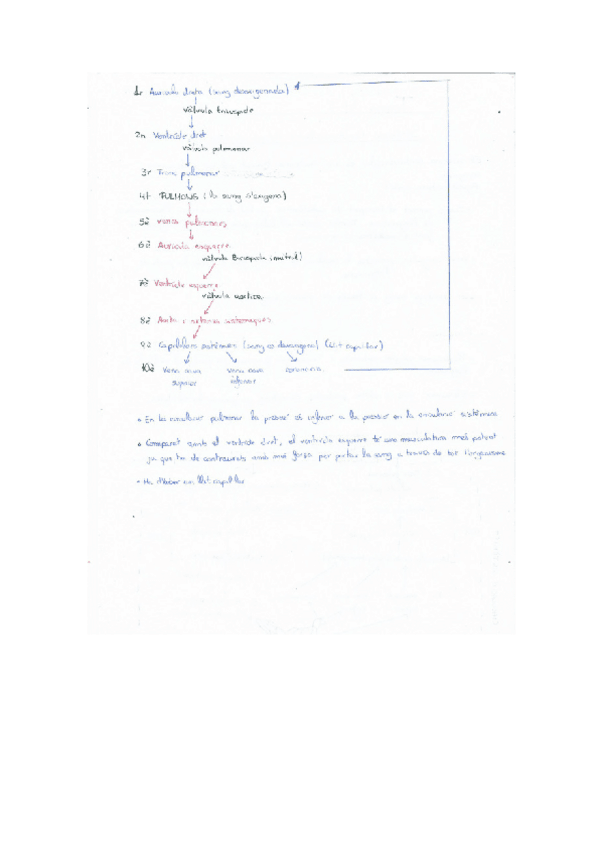 1r Aurícula dreta (sang desoxigenada)
vàlvula tricúspide
2n Ventricle dret
vàlvula pulmonar
3r Tronc pulmonar
4t PULMONS (la sang s'oxigena)
5è venes pulmonars
6è Aurícula esquerre
vàlvula Bicúspide (mitral)
7è Ventricle esquerre
vàlvula aòrtica
8è Aorta i artèries sistèmiques
9è Capil·lars sistèmics (sang es desoxigena) (llit capil·lar)
10è Vena cava superior
Vena cava inferior
coronaris
• En la circulació pulmonar la pressió és inferior a la pressió en la circulació sistèmica
• Comparat amb el ventricle dret, el ventricle esquerre té una musculatura més potent
ja que ha de contraure's amb més força per portar la sang a través de tot l'organisme
• Ha d'haber un llit capil·lar